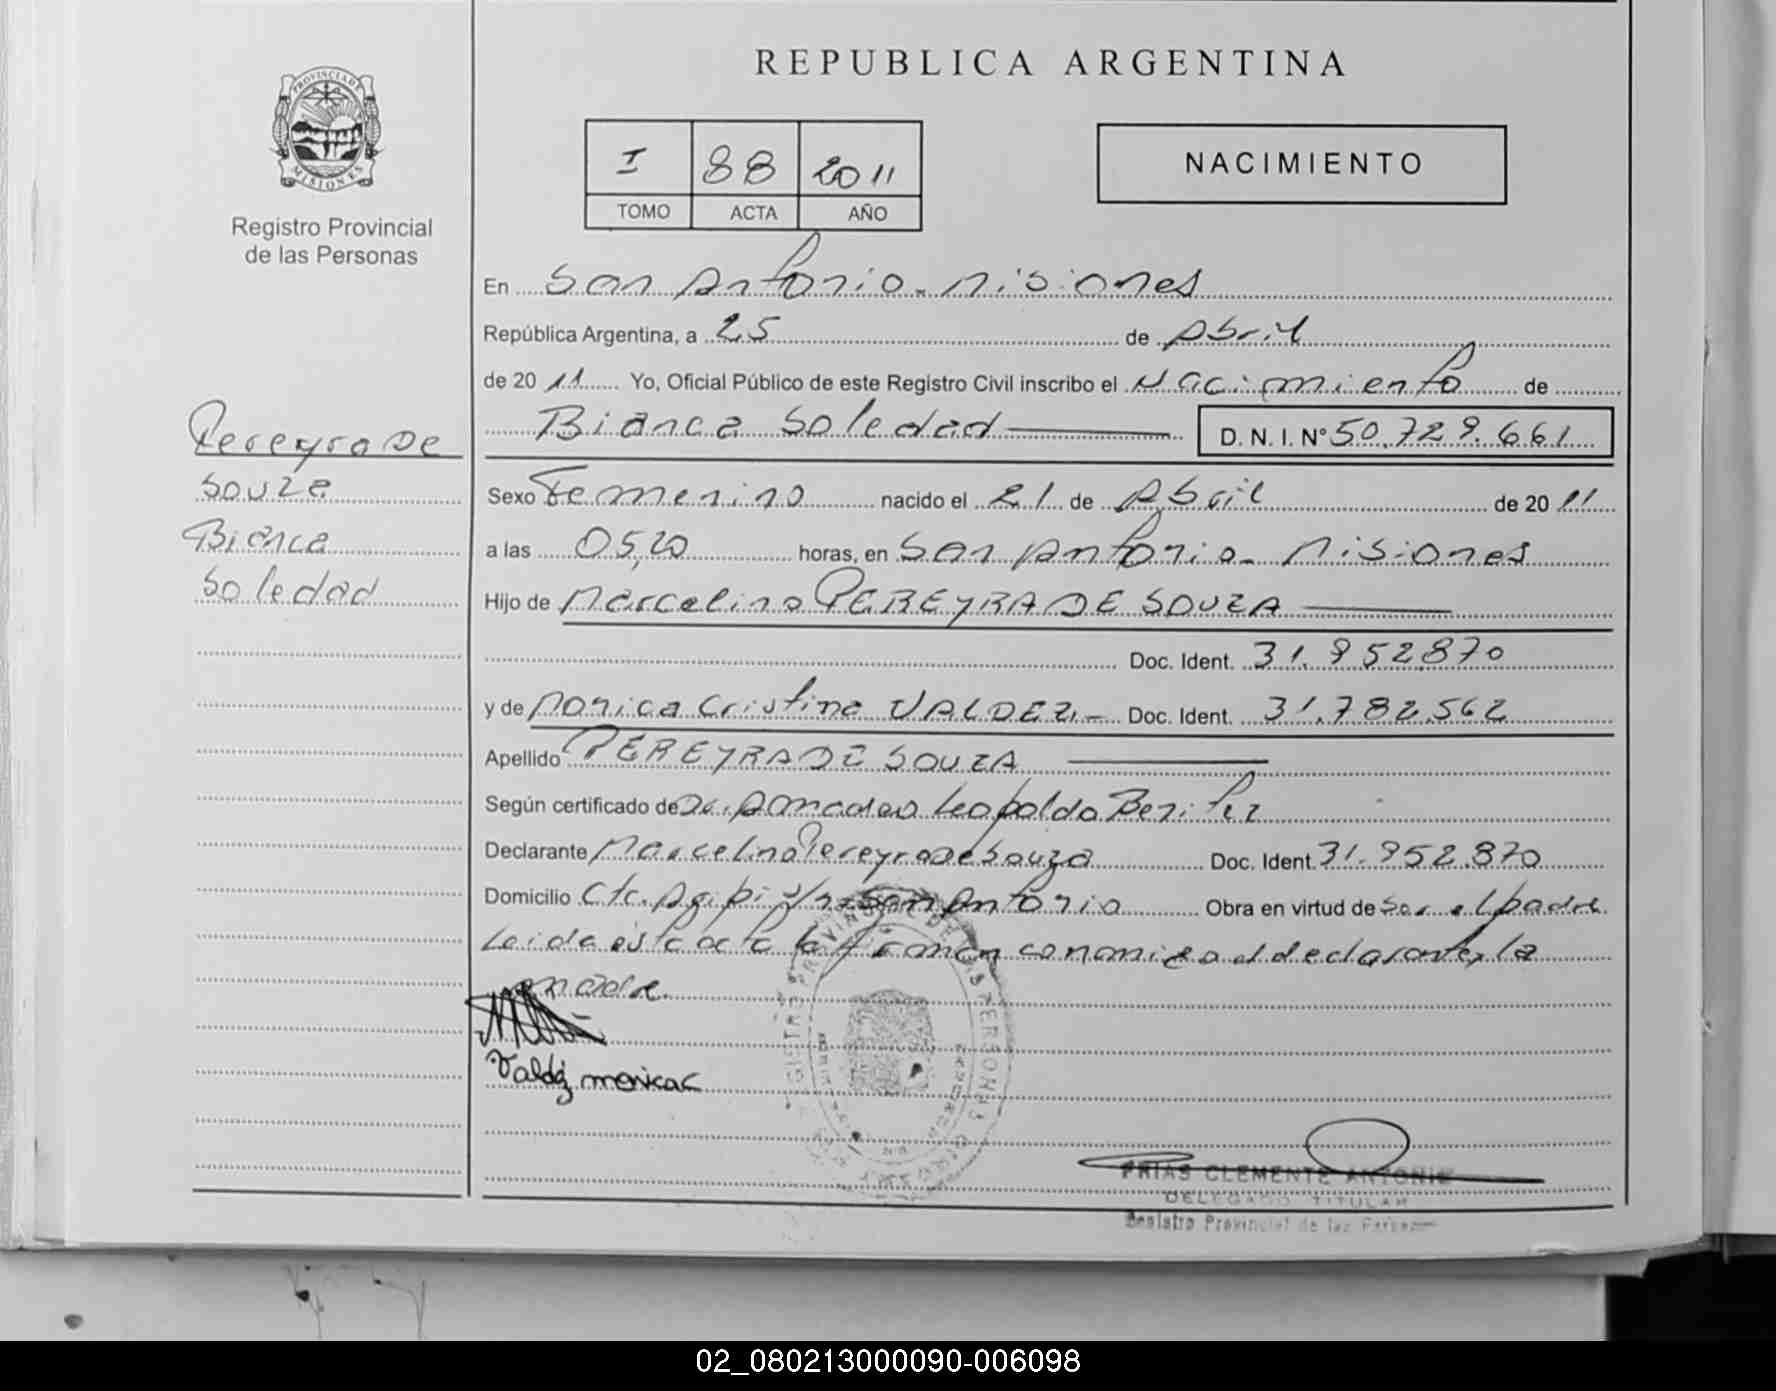 PROVINCIA DE
MISIONES
Registro Provincial
de las Personas
REPUBLICA ARGENTINA
I 88 2011
TOMO ACTA AÑO
NACIMIENTO
En San Antonio - Misiones
República Argentina, a 25 de Abril
de 20 11 Yo, Oficial Público de este Registro Civil inscribo el Nacimiento de
Bianca Soledad D. N. I. N° 50.729.661
Pereyra De
Souza
Bianca
Soledad
Sexo Femenino nacido el 21 de Abril de 20 11
a las 05,20 horas, en San Antonio - Misiones
Hijo de Marcelino PEREYRA DE SOUZA
Doc. Ident. 31.952.870
y de Monica Cristina VALDEZ.- Doc. Ident. 31.782.562
Apellido PEREYRA DE SOUZA
Según certificado de Dr. Amadeo Leopoldo Benitez
Declarante Marcelino Pereyra De Souza Doc. Ident. 31.952.870
Domicilio San Antonio Obra en virtud de Ser el padre
Leida esta acta la firman conmigo el declarante y la
madre.
Valdéz monica C
FRIAS CLEMENTE ANTONIO
DELEGADO TITULAR
Registro Provincial de las Personas
02_080213000090-006098